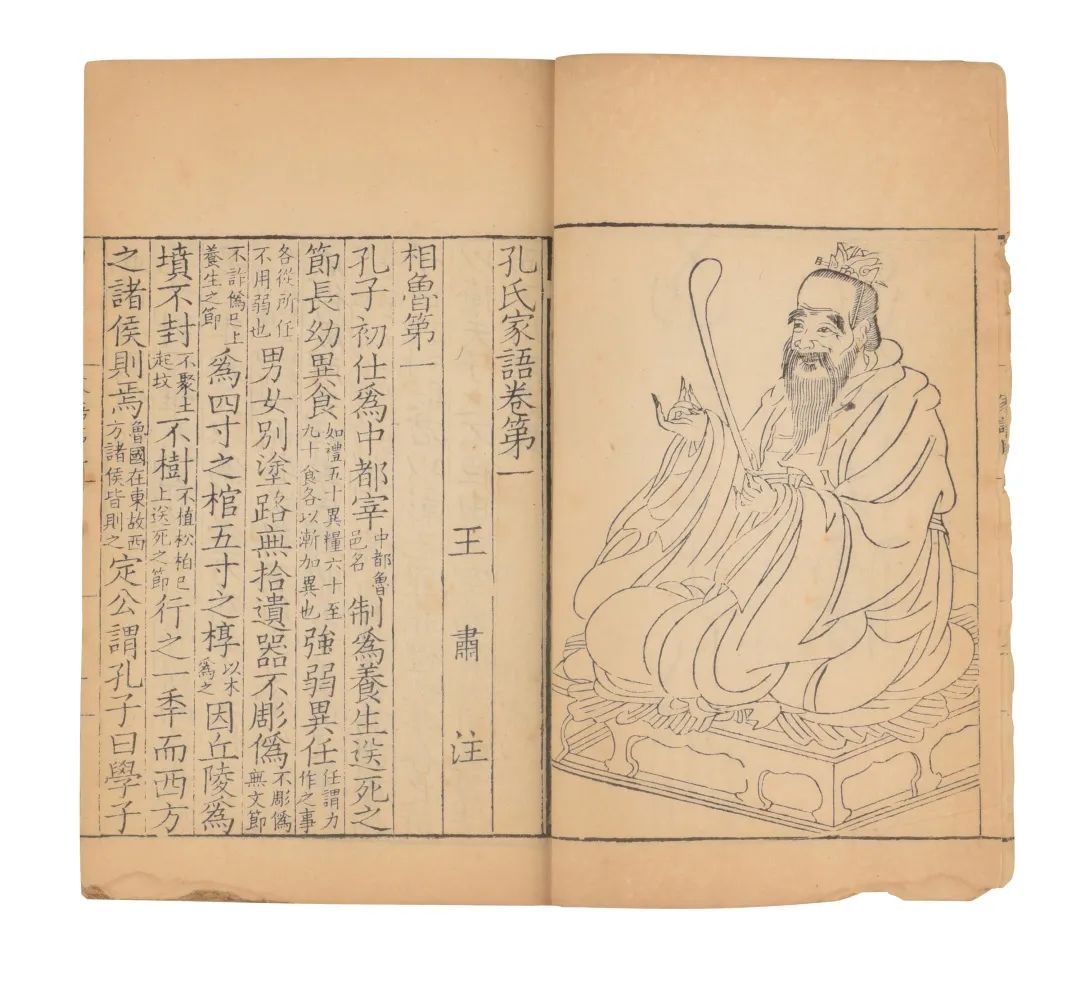 孔氏家語卷第一
王肅注
相魯第一
孔子初仕爲中都宰中都魯邑名制爲養生送死之
節長幼異食如禮五十異糧六十至九十食各以漸加異也強弱異任任謂力作之事
各從所任不用弱也男女別塗路無拾遺器不彫僞不彫僞無文節
不詐僞巳上養生之節爲四寸之棺五寸之椁以木爲之因丘陵爲
墳不封不聚土起坟不樹不植松柏巳上送死之節行之一秊而西方
之諸侯則焉魯國在東故西方諸侯皆則之定公謂孔子曰學子